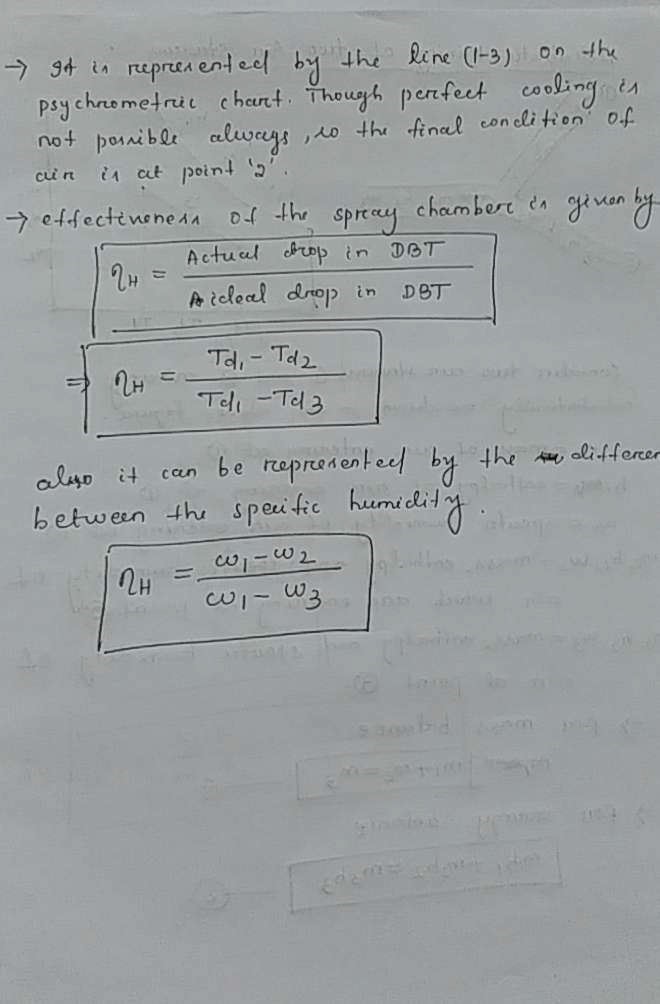 → It is represented by the line (1-3) on the
psychrometric chart. Though perfect cooling is
not possible always, so the final condition of
air is at point '2'.
→ effectiveness of the spray chamber is given by
ηH = Actual drop in DBT / ideal drop in DBT
⇒ ηH = Td1 - Td2 / Td1 - Td3
also it can be represented by the differen
between the specific humidity.
ηH = ω1 - ω2 / ω1 - ω3